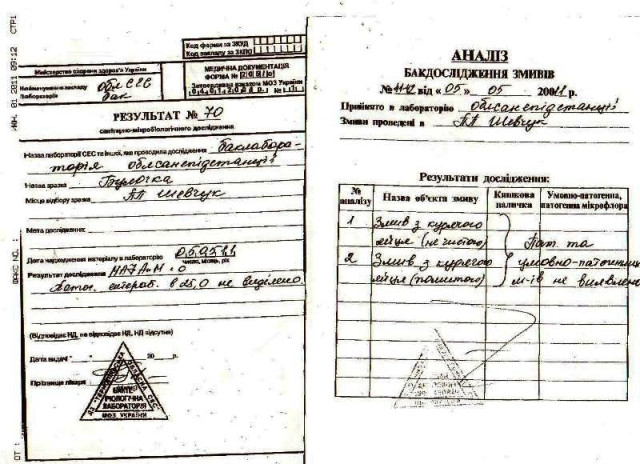 Код форми за ЗКУД
Код закладу за ЗКПО
Міністерство охорони здоров'я України
Найменування закладу облСЕС
Лабораторія бак
МЕДИЧНА ДОКУМЕНТАЦІЯ
ФОРМА №
Затверджена наказом МОЗ України
РЕЗУЛЬТАТ № 70
санітарно-мікробіологічного дослідження
Назва лабораторії СЕС та іншої, яка проводила дослідження баклабора-
торія облсанепідстанції
Назва зразка Булочка
Місце відбору зразка ПП Шевчук
Мета дослідження:
Дата надходження матеріалу в лабораторію 05.05.11
число, місяць, рік
Результат дослідження
в 25,0 не виділено
(Відповідає НД, не відповідає НД, НД відсутня)
Дата видачі "___" 20 р.
Прізвище лікаря
БАКТЕ-
РІОЛОГІЧНА
ЛАБОРАТОРІЯ
МОЗ УКРАЇНИ
АНАЛІЗ
БАКДОСЛІДЖЕННЯ ЗМИВІВ
від « 05 » 05 р.
Прийнято в лабораторію облсанепідстанції
Змиви проведені в ПП Шевчук
Результати дослідження:
№ аналізу Назва об'єкта змиву Кишкова паличка Умовно-патогенна, патогенна мікрофлора
1 Змив з курячого
яйця (не чистого) Пат. та
2 Змив з курячого умовно-патогенних
яйця (помитого) м-ів не виявлено